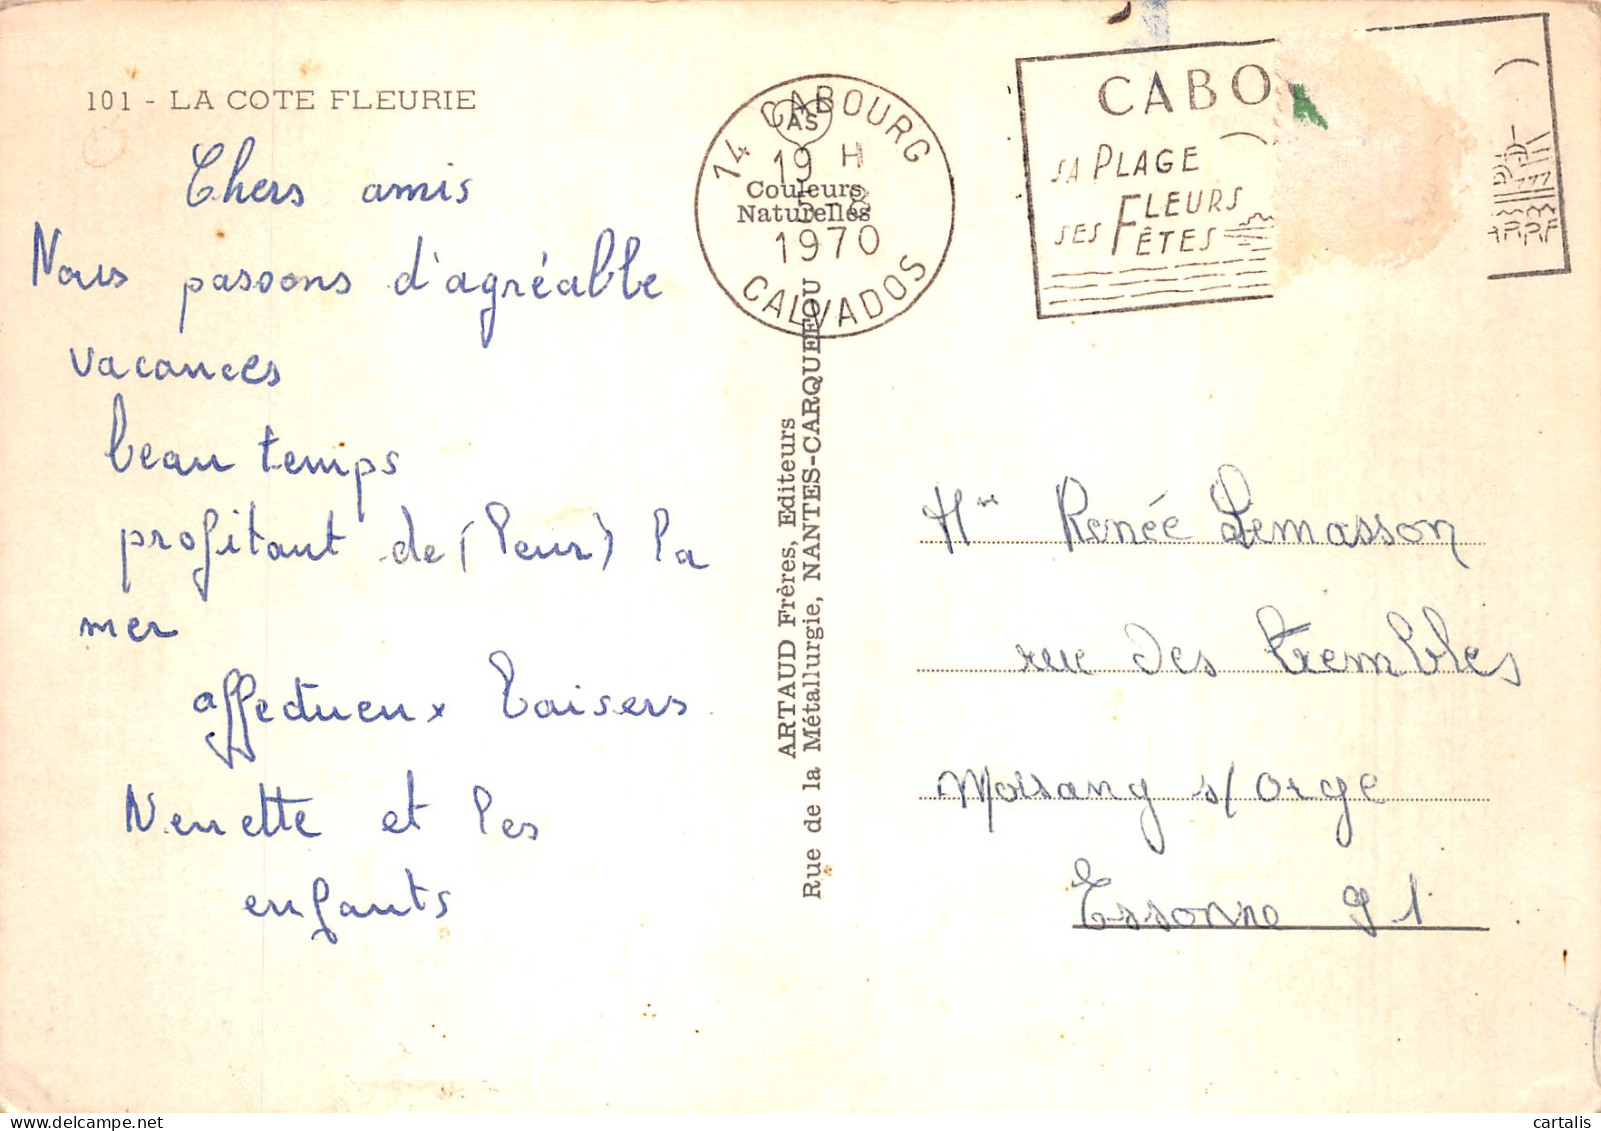 101 - LA COTE FLEURIE
Chers amis
Nous passons d'agréable
vacances
beau temps
profitant de (leur) la
mer
affectueux baisers
Nenette et les
enfants
14 CABOURG
AS
19 H
5-8
1970
CALVADOS
Couleurs
Naturelles
ARTAUD Frères, Editeurs
Rue de la Métallurgie, NANTES-CARQUEFOU
CABO
SA PLAGE
SES FLEURS
FÊTES
Mme Renée Lemasson
rue des trembles
Morsang s/ orge
Essonne 91
cartalis